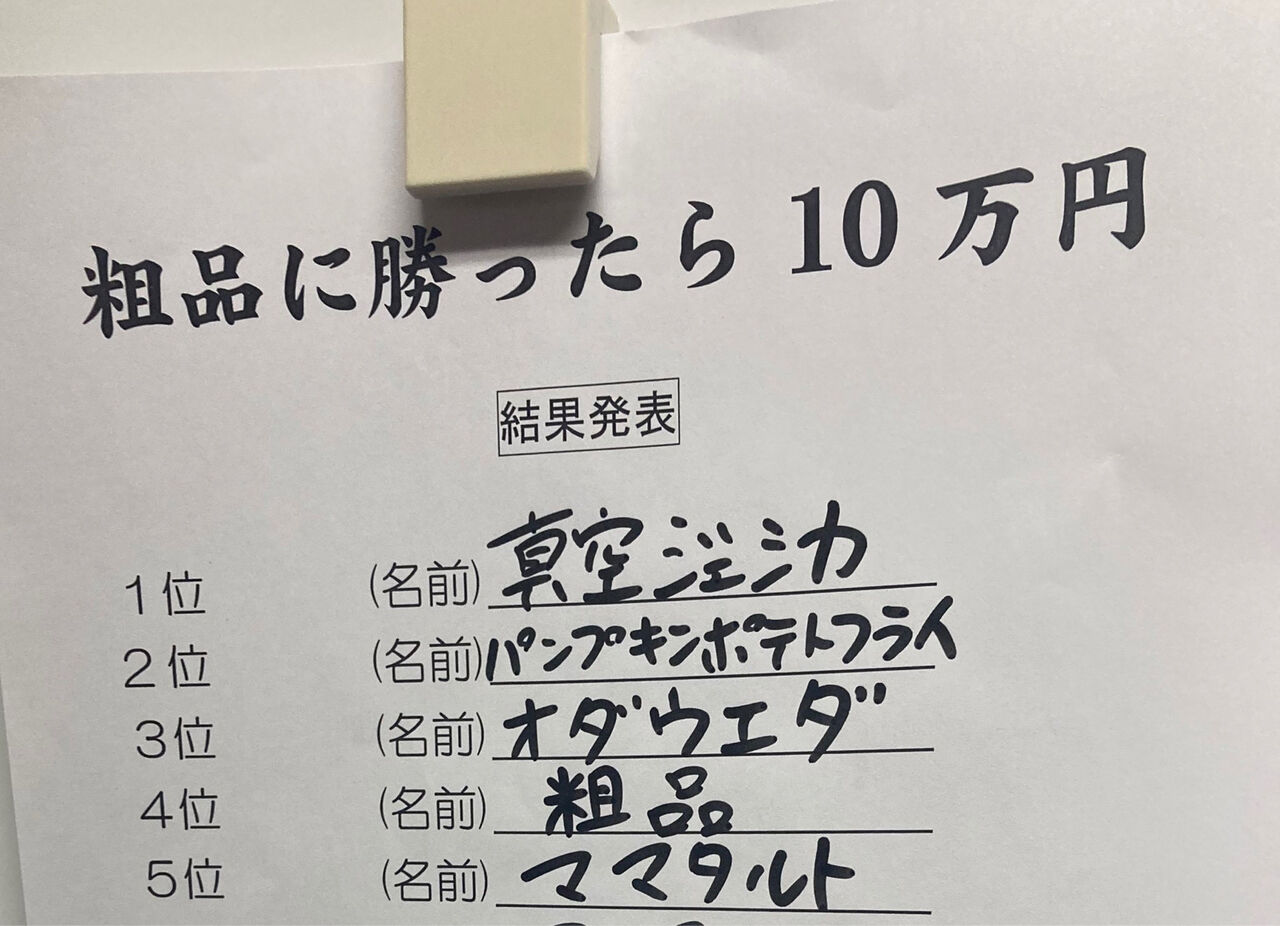 粗品に勝ったら10万円
結果発表
1位 (名前) 真空ジェシカ
2位 (名前) パンプキンポテトフライ
3位 (名前) オダウエダ
4位 (名前) 粗品
5位 (名前) ママタルト